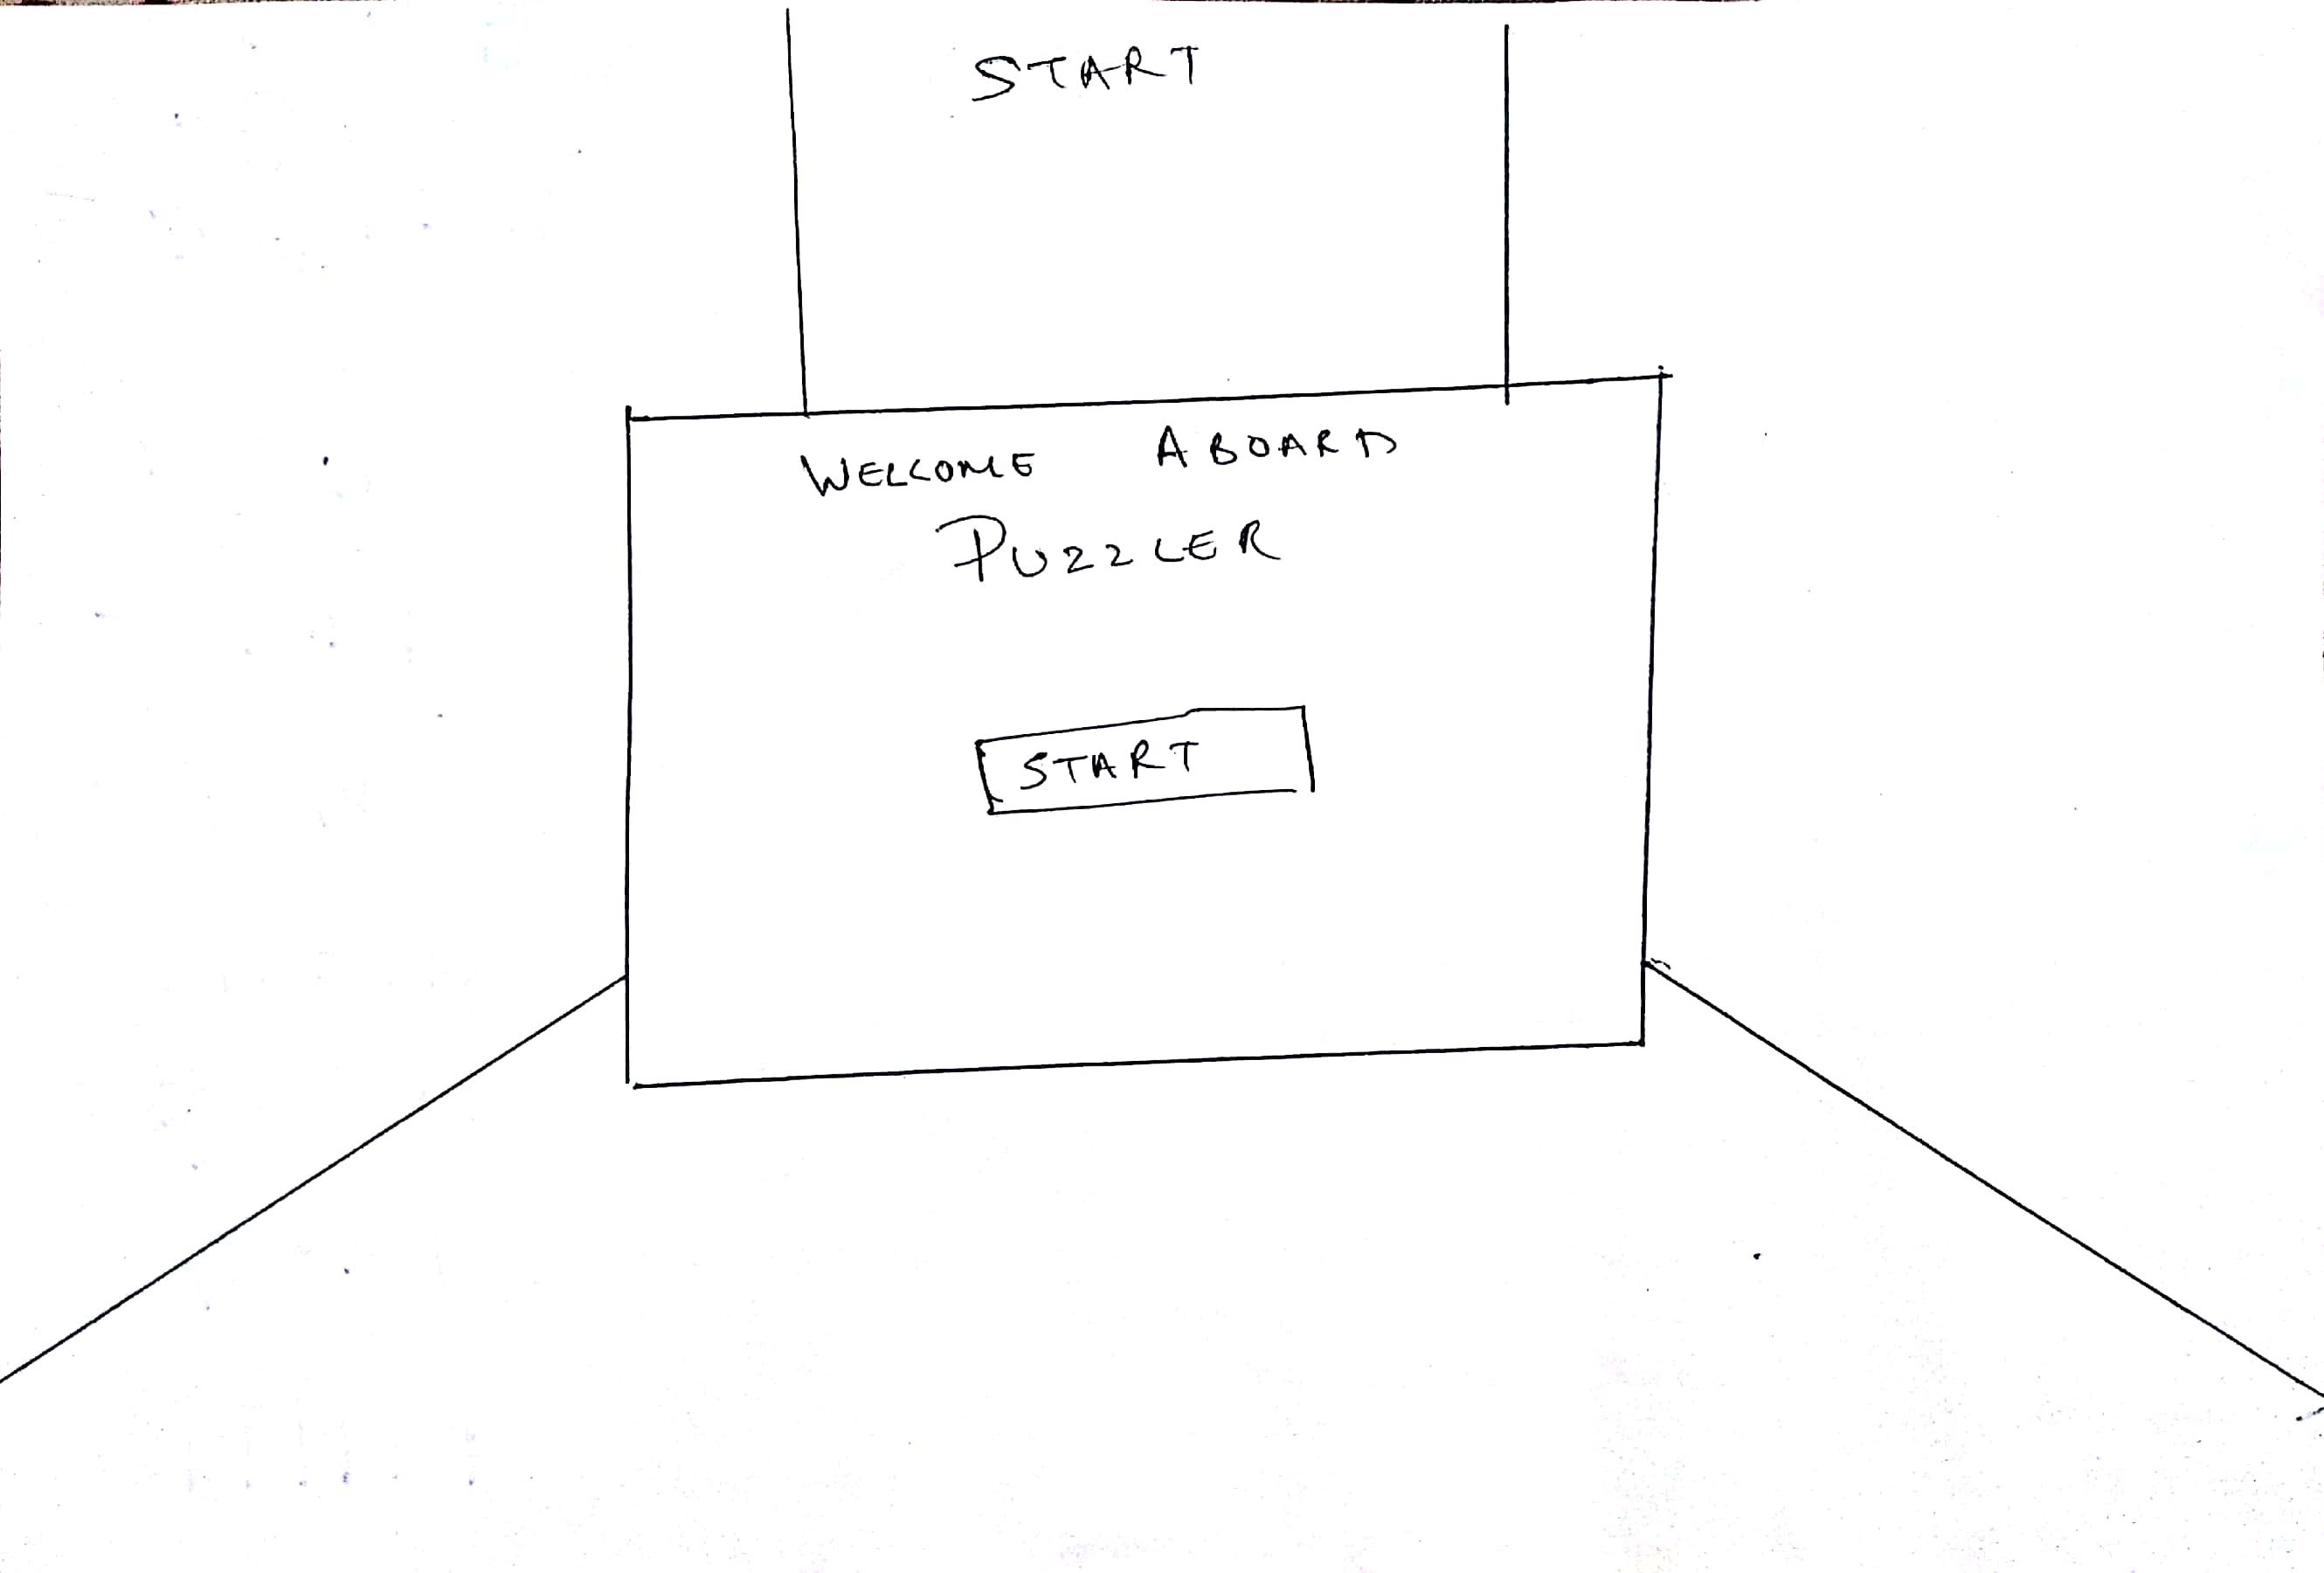 START
WELCOME ABOARD
PUZZLER
START